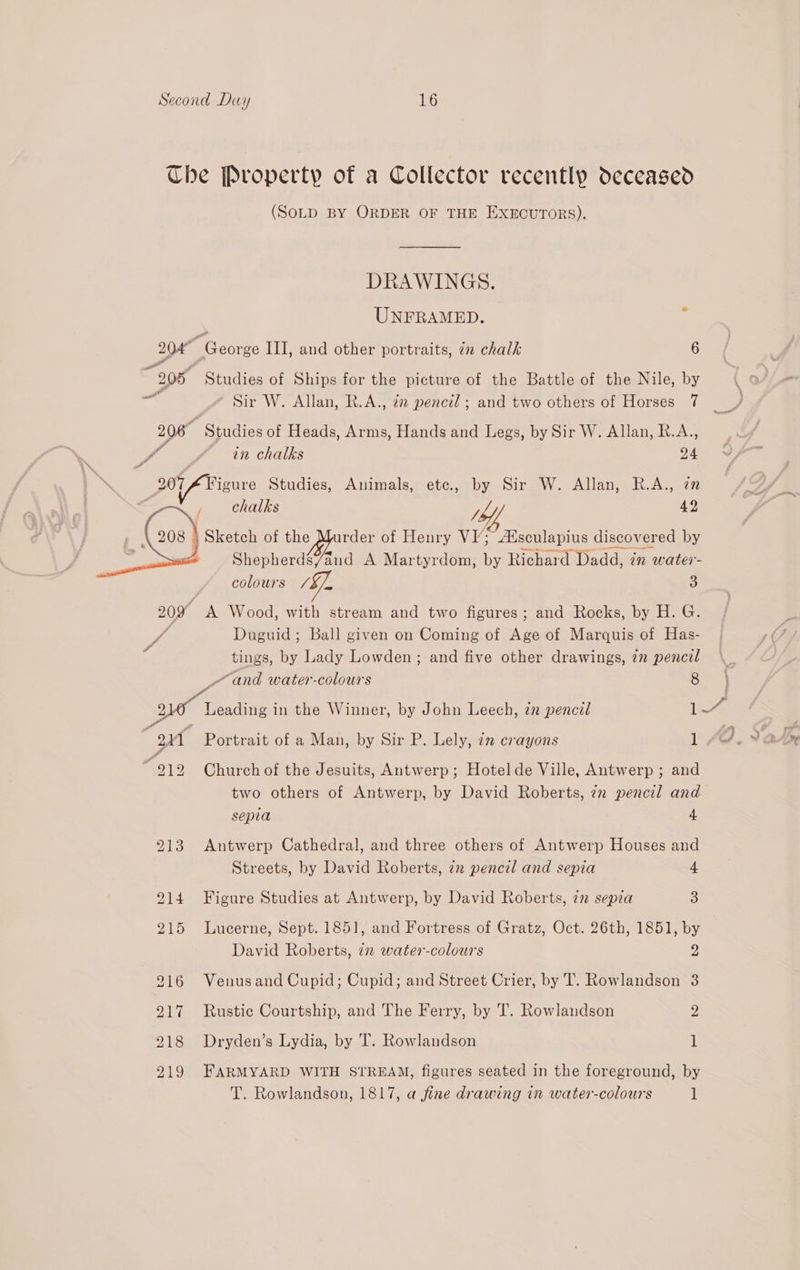 Second Day 16
The Property of a Collector recently deceased
(SOLD BY ORDER OF THE EXECUTORS).
DRAWINGS.
UNFRAMED.
204 George III, and other portraits, in chalk 6
205 Studies of Ships for the picture of the Battle of the Nile, by
Sir W. Allan, R.A., in pencil; and two others of Horses 7
206 Studies of Heads, Arms, Hands and Legs, by Sir W. Allan, R.A.,
in chalks 24
207 Figure Studies, Animals, etc., by Sir W. Allan, R.A., in
chalks 42
208 Sketch of the Murder of Henry VI; Æsculapius discovered by
Shepherds, and A Martyrdom, by Richard Dadd, in water-
colours 3
209 A Wood, with stream and two figures; and Rocks, by H. G.
Duguid; Ball given on Coming of Age of Marquis of Has-
tings, by Lady Lowden; and five other drawings, in pencil
and water-colours 8
210 Leading in the Winner, by John Leech, in pencil 1
211 Portrait of a Man, by Sir P. Lely, in crayons 1
212 Church of the Jesuits, Antwerp; Hotel de Ville, Antwerp; and
two others of Antwerp, by David Roberts, in pencil and
sepia 4
213 Antwerp Cathedral, and three others of Antwerp Houses and
Streets, by David Roberts, in pencil and sepia 4
214 Figure Studies at Antwerp, by David Roberts, in sepia 3
215 Lucerne, Sept. 1851, and Fortress of Gratz, Oct. 26th, 1851, by
David Roberts, in water-colours 2
216 Venus and Cupid; Cupid; and Street Crier, by T. Rowlandson 3
217 Rustic Courtship, and The Ferry, by T. Rowlandson 2
218 Dryden's Lydia, by T. Rowlandson 1
219 FARMYARD WITH STREAM, figures seated in the foreground, by
T. Rowlandson, 1817, a fine drawing in water-colours 1